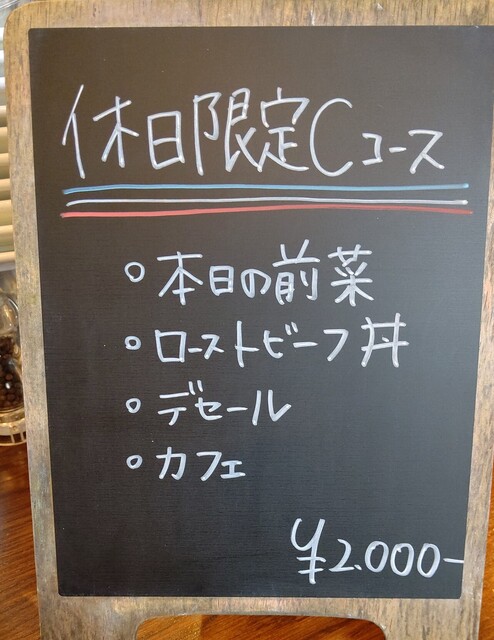 休日限定Cコース
○本日の前菜
○ローストビーフ丼
○デセール
○カフェ
¥2.000-